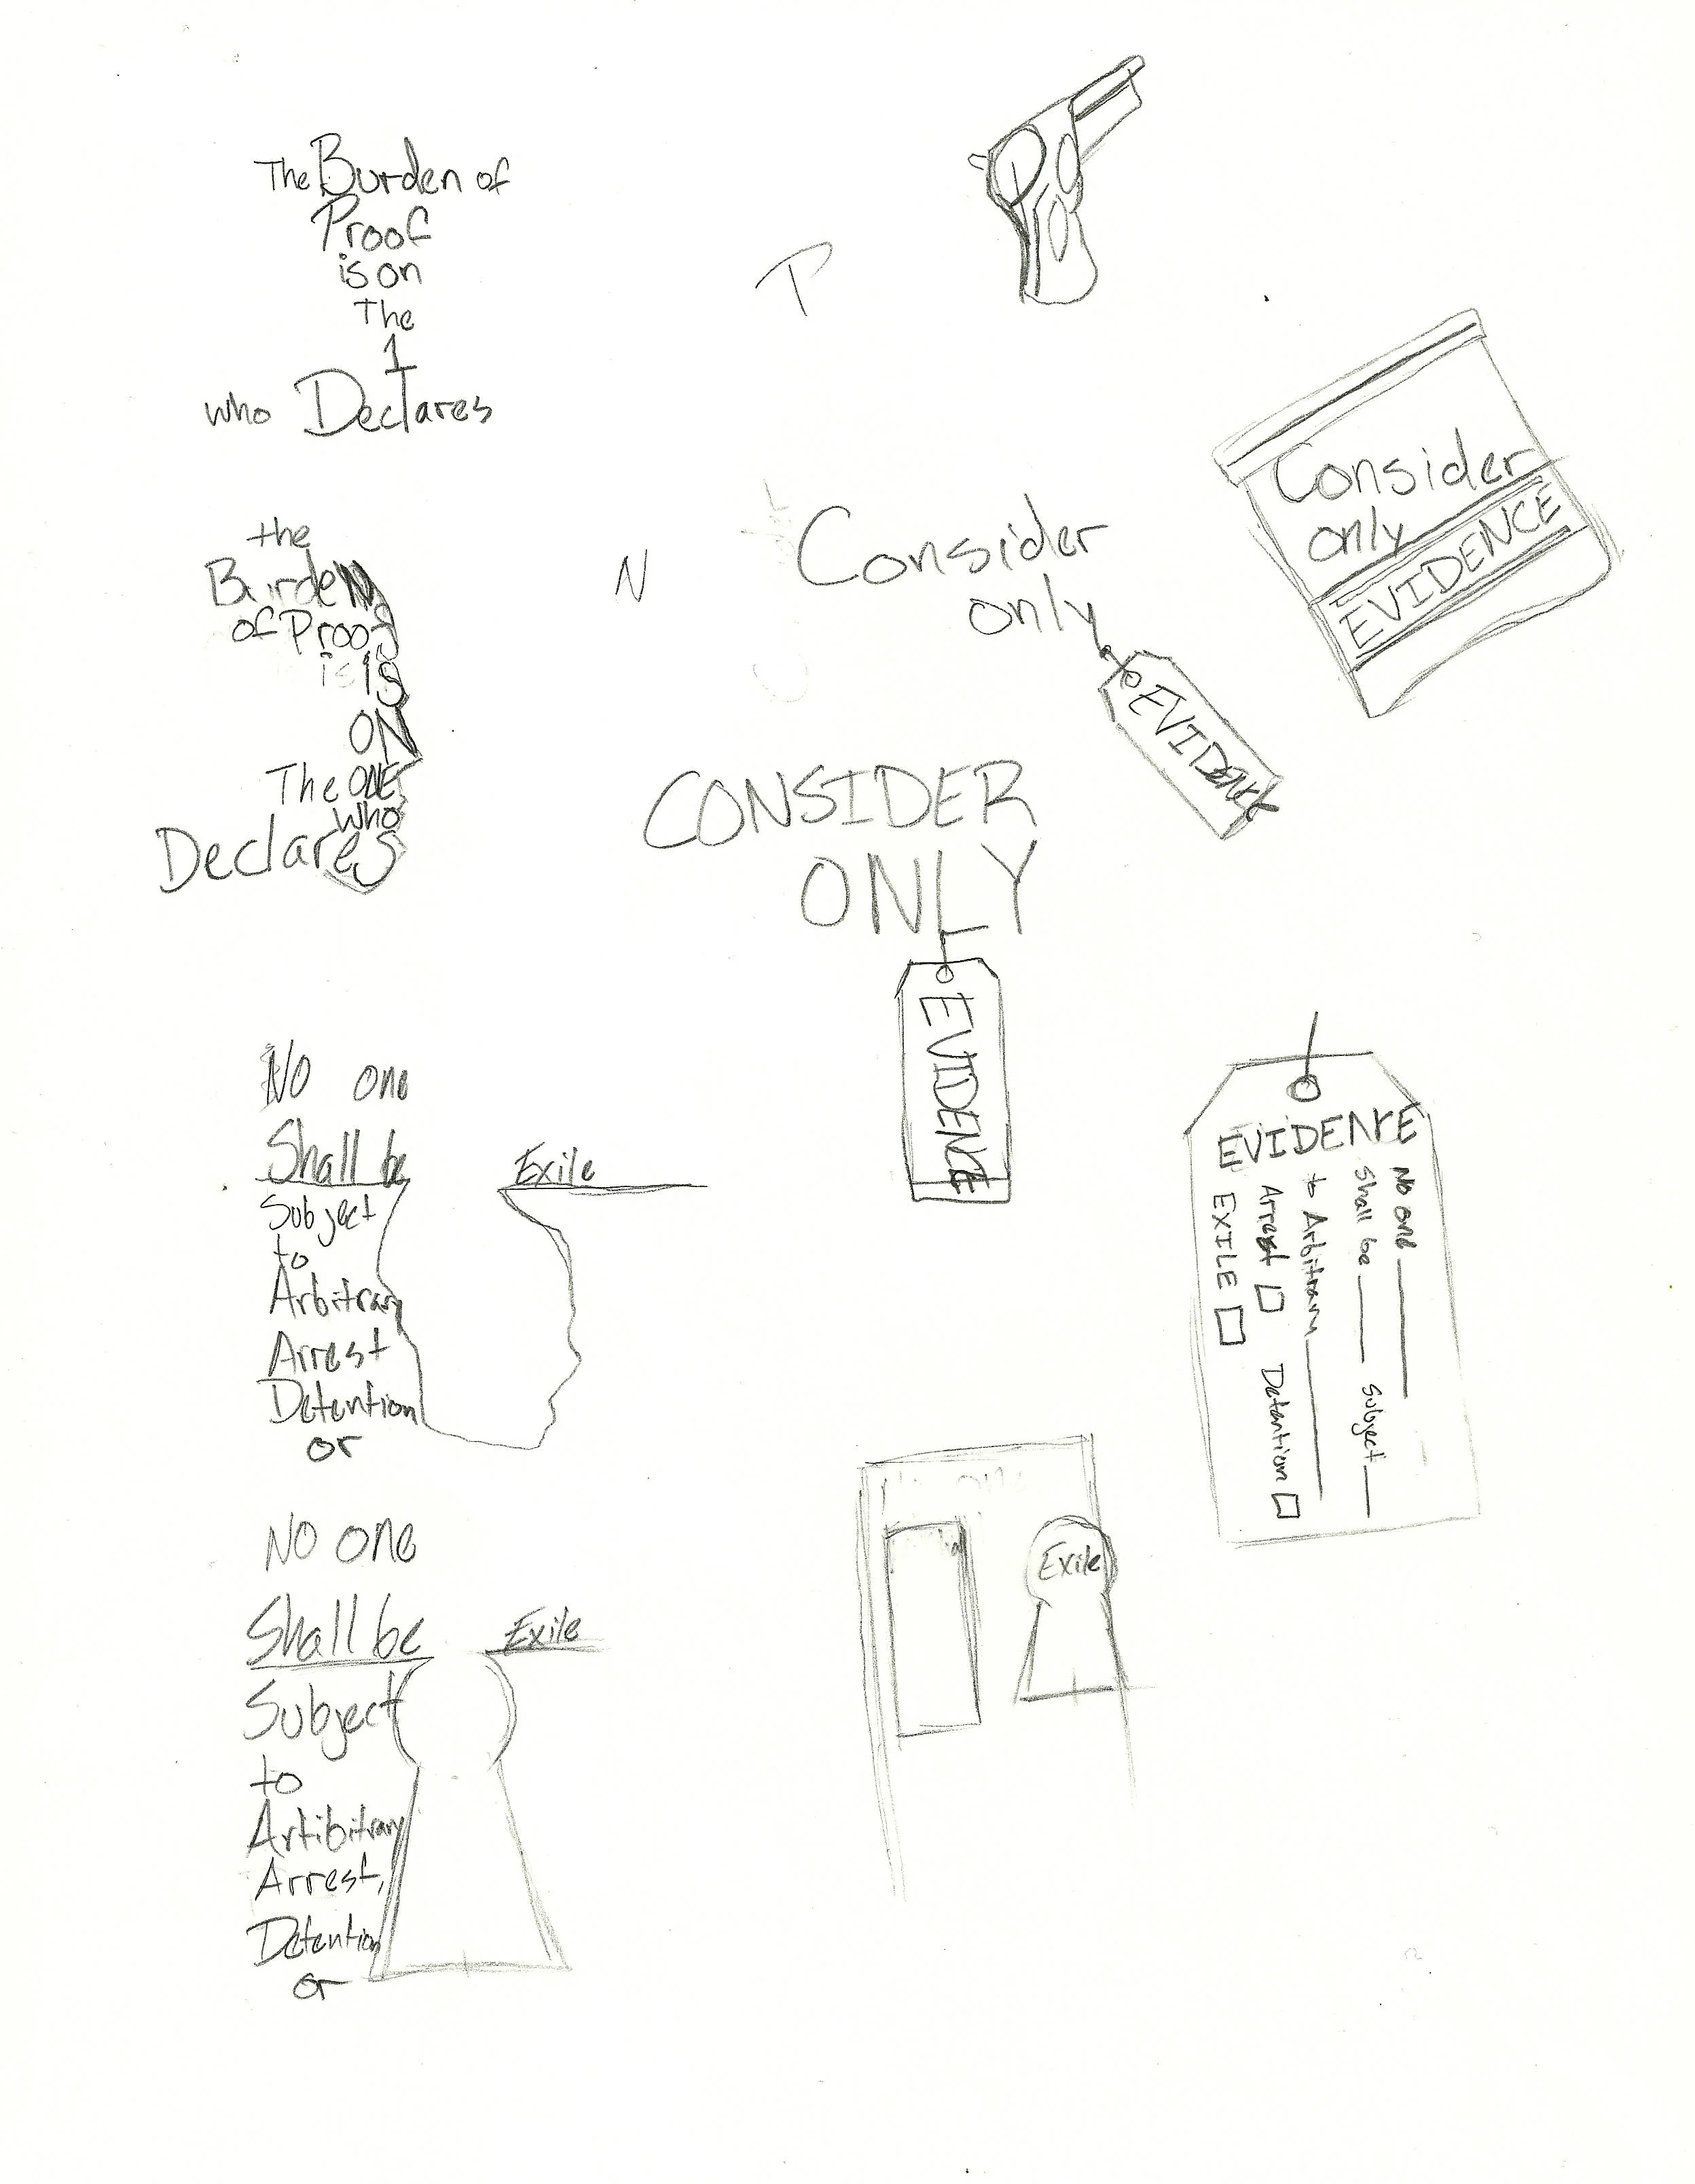 The Burden of
Proof
is on
The
1
who Declares
T
the
Burden
of Proof
is is
ON
The ONE
who
Declares
N
Consider
only
EVIDENCE
Consider
only
EVIDENCE
CONSIDER
ONLY
EVIDENCE
No one
Shall be
Subject
to
Arbitrary
Arrest
Detention
or
Exile
EVIDENCE
No one
Shall be Subject
to Arbitrary
Arrest Detention
EXILE
No one
Shall be
Subject
to
Artibitrary
Arrest,
Detention
or
Exile
one
Exile